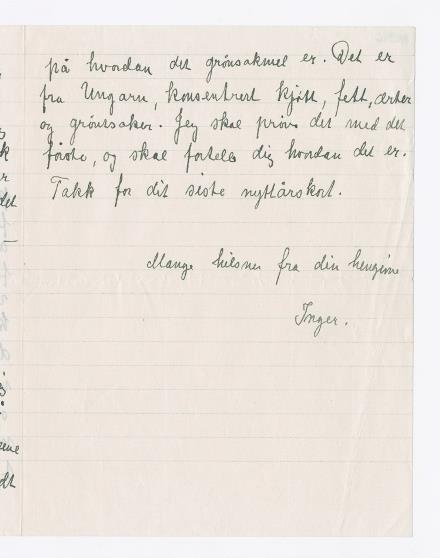 på hvordan det grönsakmel er. Det er
fra Ungarn, konsentrert kjött, fett, erter
og grönsaker. Jeg skal pröve det med det
förste, og skal fortele dig hvordan det er.
Takk for dit siste nyttårskort.
Mange hilsner fra din hengivne
Inger.
k
r
det
dt